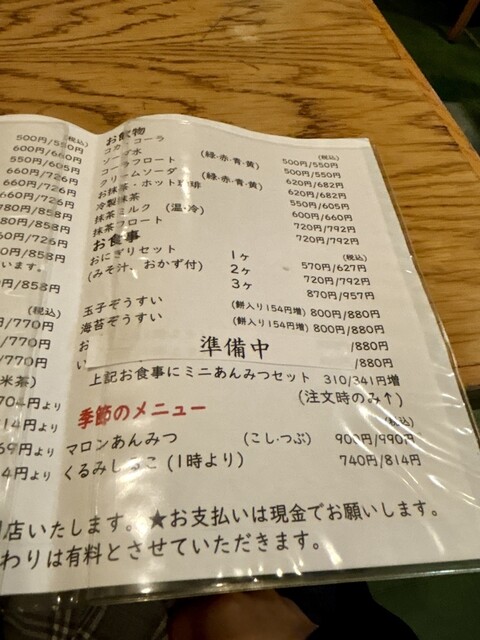 (税込)
500円/550円
600円/660円
550円/605円
660円/726円
660円/726円
780円/858円
780円/858円
60円/726円
80円/858円
います。
0円/858円
(税込)
0円/770円
円/770円
円/770円
米茶)
704円より
円より
69円より
4円より
お飲物
(税込)
コカ・コーラ
500円/550円
ソーダ水 (緑・赤・青・黄) 500円/550円
コーラフロート 620円/682円
クリームソーダ (緑・赤・青・黄) 620円/682円
お抹茶・ホット珈琲 550円/605円
冷製抹茶 600円/660円
抹茶ミルク (温・冷) 720円/792円
抹茶フロート 720円/792円
お食事
(税込)
おにぎりセット 1ヶ 570円/627円
(みそ汁、おかず付) 2ヶ 720円/792円
3ヶ 870円/957円
玉子ぞうすい (餅入り154円増) 800円/880円
海苔ぞうすい (餅入り154円増) 800円/880円
お 準備中 /880円
い /880円
上記お食事にミニあんみつセット 310/341円増
(注文時のみ↑)
季節のメニュー
(税込)
マロンあんみつ (こし・つぶ) 900円/990円
くるみしるこ (1時より) 740円/814円
店いたします。 ★お支払いは現金でお願いします。
わりは有料とさせていただきます。